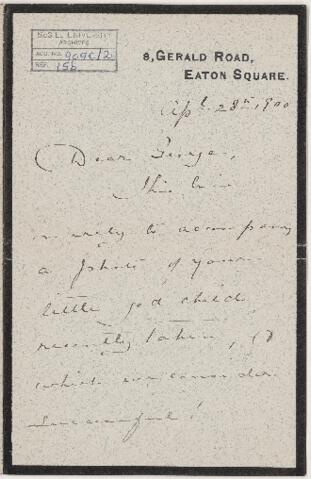 N.S.L. UNIVERSITY
ARCHIVES
ACC. NO. 9056/2
REF. 156
8, GERALD ROAD,
EATON SQUARE.
Apl. 28th, 1900
Dear George,
This is
merely to accompany
a photo of your
little god child,
recently taken,
which we consider
successful!